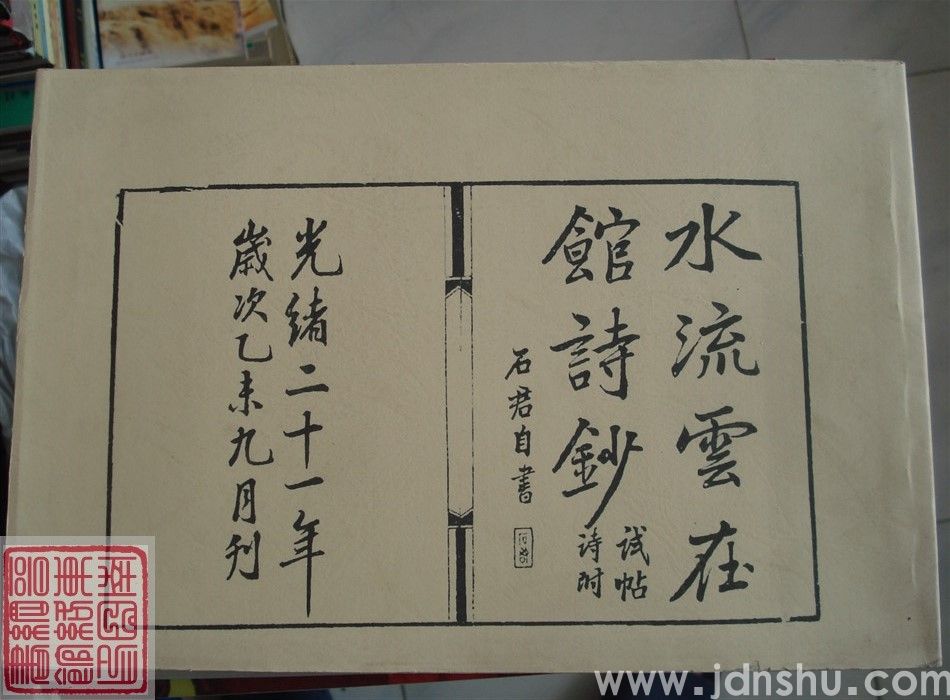 水流雲在
館詩鈔
試帖
詩附
石君自書
光緒二十一年
歲次乙未九月刊
www.jdnshu.com